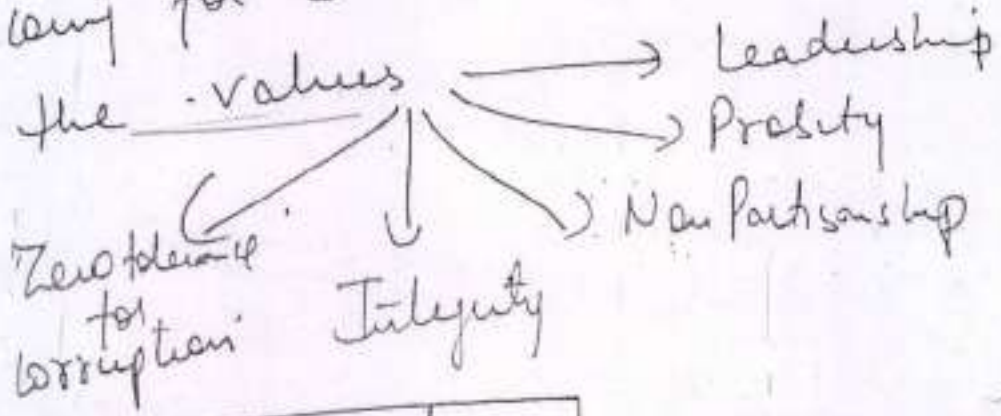 for
the values
Leadership
Probity
Non Partisanship
Integrity
Zero tolerance
for
corruption